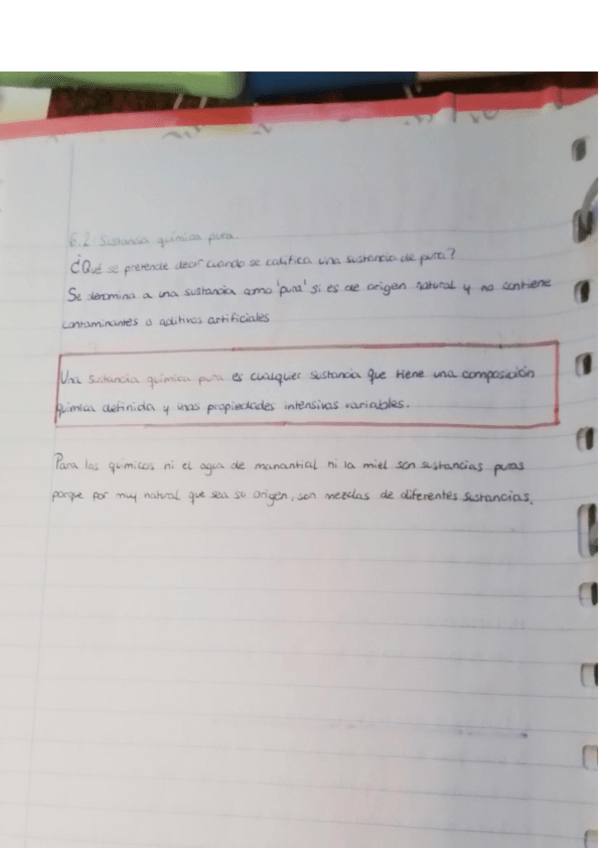 6.2 Sustancia química pura.
¿Qué se pretende decir cuando se califica una sustancia de pura?
Se denomina a una sustancia como 'pura' si es de origen natural y no contiene
contaminantes o aditivos artificiales
Una sustancia química pura es cualquier sustancia que tiene una composición
química definida y unas propiedades intensivas variables.
Para los químicos ni el agua de manantial ni la miel son sustancias puras
porque por muy natural que sea su origen, son mezclas de diferentes sustancias.